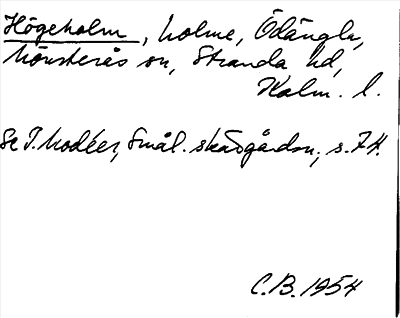 Högeholm, holme, Ödängla,
Mönsterås sn, Stranda hd,
Kalm. l.
Se I. Modéer, Smål. skärgårdsn., s. 74.
C.B. 1954